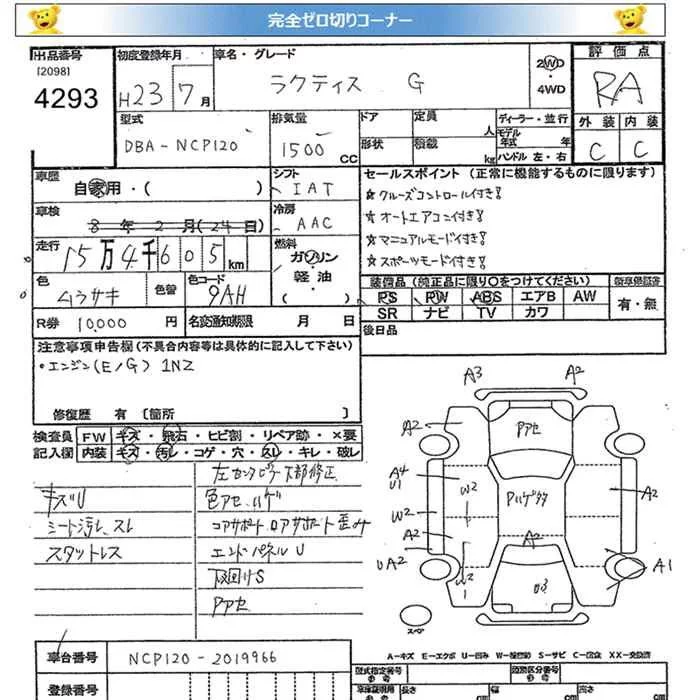 完全ゼロ切りコーナー
出品番号 初度登録年月 車名・グレード 評価点
[2098] 2WD
4293 H23 7月 ラクティス G 4WD RA
型式 排気量 ドア 定員 人 ディーラー・並行 外装 内装
DBA-NCP120 1500 CC 形状 積載 kg モデル年式 年 C C
ハンドル 左・右
車歴 シフト セールスポイント (正常に機能するものに限ります)
自家用・( ) IAT ☆クルーズコントロール付き!
車検 冷房 ☆オートエアコン付き!
8年2月(24日) AAC ☆マニュアルモード付き!
走行 燃料 ☆スポーツモード付き!
15万4千605km ガソリン・
色 色替 色コード 軽油・ 装備品 (純正品に限り○をつけてください)
ムラサキ 9AH ( ) PS PW ABS エアB AW 有・無
R券 10,000 円 名変通知期限 月 日 SR ナビ TV カワ
後日品
注意事項申告欄(不具合内容等は具体的に記入して下さい)
・エンジン(E/G) 1NZ
修復歴 有 [箇所 ]
検査員 FW キズ・飛石・ヒビ割・リペア跡・×要
記入欄 内装 キズ・汚レ・コゲ・穴・スレ・キレ・破レ
左センタピラー下部修正
キズU 色アセ、ハゲ
シート汚レ、スレ コアサポート、ロアサポート歪み
スタットレス エンドパネルU
下回りS
Pアセ
A3 A2
A2 Pアセ
A4 U1 W2 Pハゲタタ A2
W2
A2 A2
UA2 W2 1 A1
スペア
A-キズ E-エクボ U-凹み W-補修跡 S-サビ C-腐食 XX-交換済
車台番号 NCP120-2019966 型式指定番号 類別区分番号
登録番号 長さ cm 幅 cm 高さ cm